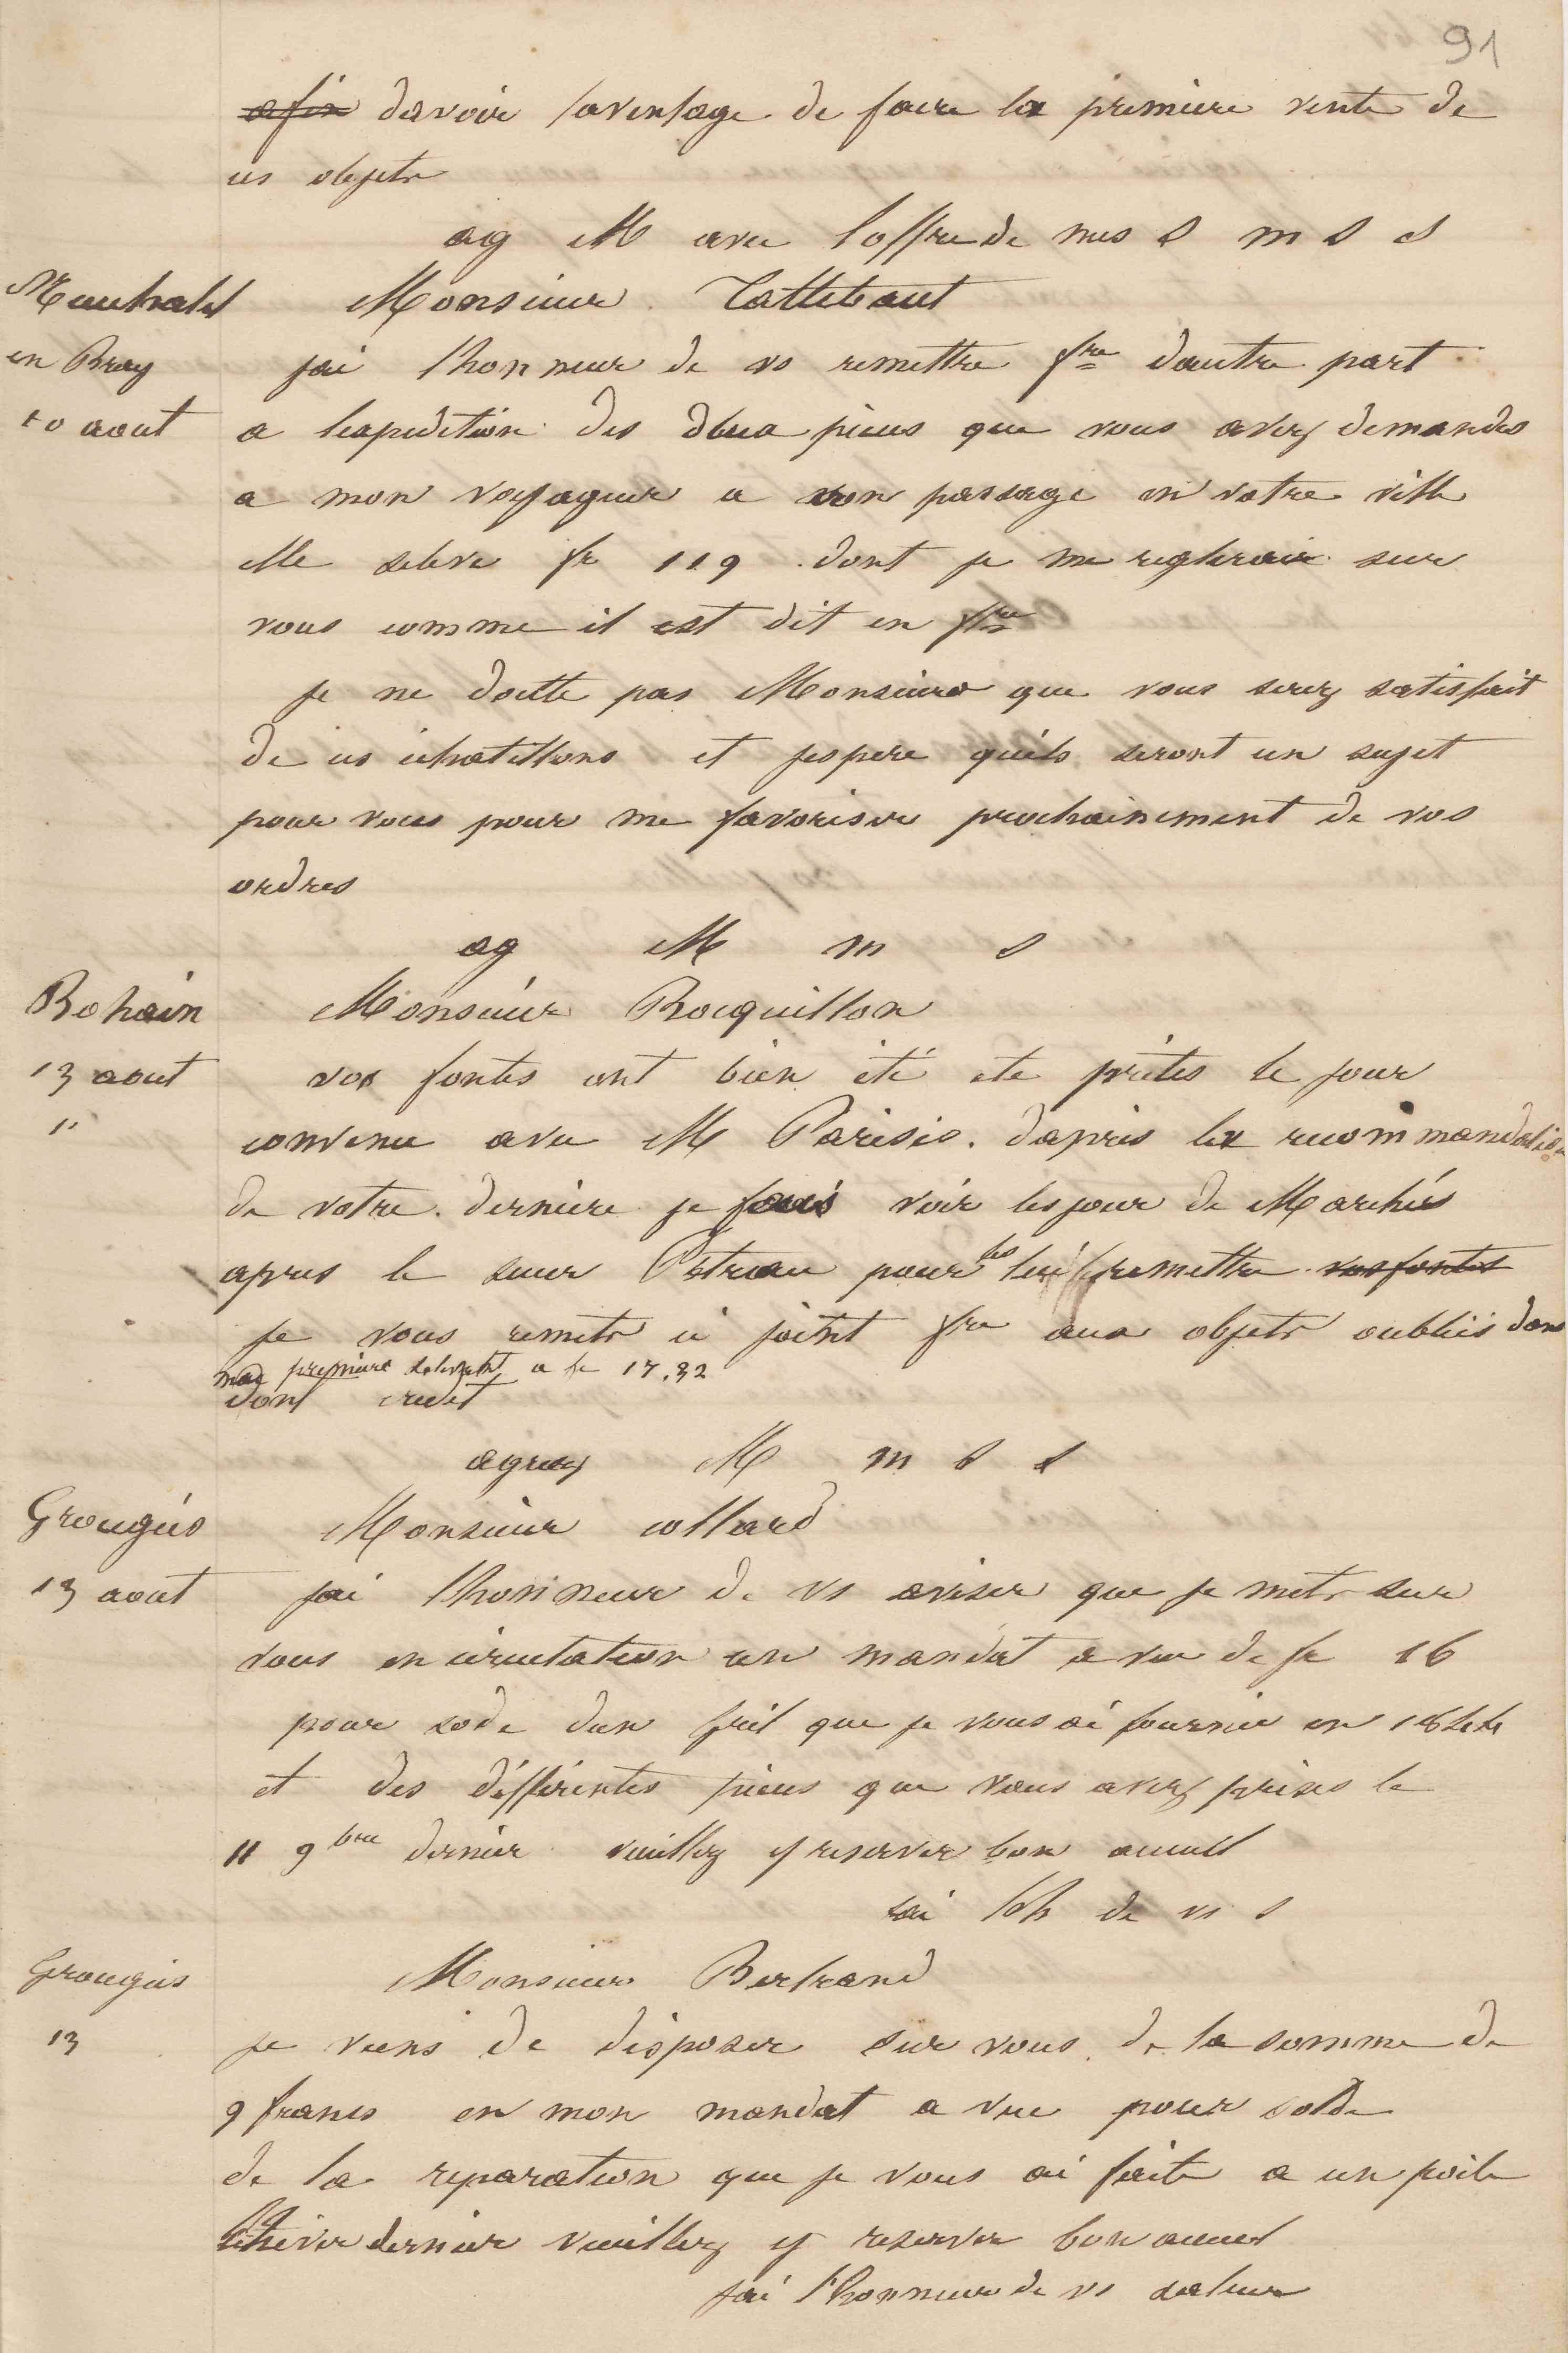 91
afin davoir lavantage de faire la premiere vente de
ces objets
ag M avec loffre de mes s m s s
en Bray
10 aout
Monsieur
jai lhonneur de vs remettre fre dautre part
a lexpedition des deux pieces que vous avez demandes
a mon voyageur a son passage en votre ville
elle seleve fr 119 dont je me reglerais sur
vous comme il est dit en fre
je ne doutte pas Monsieur que vous serez satisfait
de ces echatillons et jespere quils seront un sujet
pour vous pour me favoriser prochainement de vos
ordres
ag M m s
Bohain
13 aout
"
Monsieur Rocquillon
vos fontes ont bien été ete prètes le jour
convenu avec M Parisis. dapres la recommandation
de votre derniere je fais voir les jour de Marchés
apres le sieur Pétreau pour les lui remettre vos fontes
je vous remets ci joint fre aux objets oubliés dans
ma premiere selevant a fr 17.32
dont credit
agreez M m s s
Grougiés
13 aout
Monsieur collard
jai lhonneur de vs aviser que je mets sur
vous en circulation un mandat a vue de fr 16
pour sode dun gril que je vous ai fourni en 1844
et des différentes pieces que vous avez prises le
11 9bre dernier veuillez y reserver bon acceuil
jai lh de vs s
Grougis
13
Monsieur Bertrand
je viens de disposer sur vous de la somme de
9 francs en mon mandat a vue pour solde
de la reparation que je vous ai faite a un poile
lhiver dernier veuillez y reserver bon acceuil
jai lhonneur de vs saluer